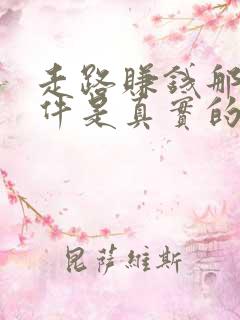 走路賺錢那
件是真實的
昆薩維斯